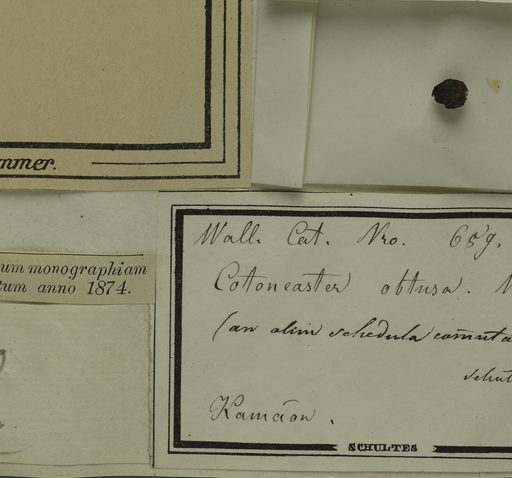 nmer.
um monographiam
tum anno 1874.
Wall. Cat. Nro. 659.
Cotoneaster obtusa.
(an olim schedula comuta
schul
Kamáon.
SCHULTES